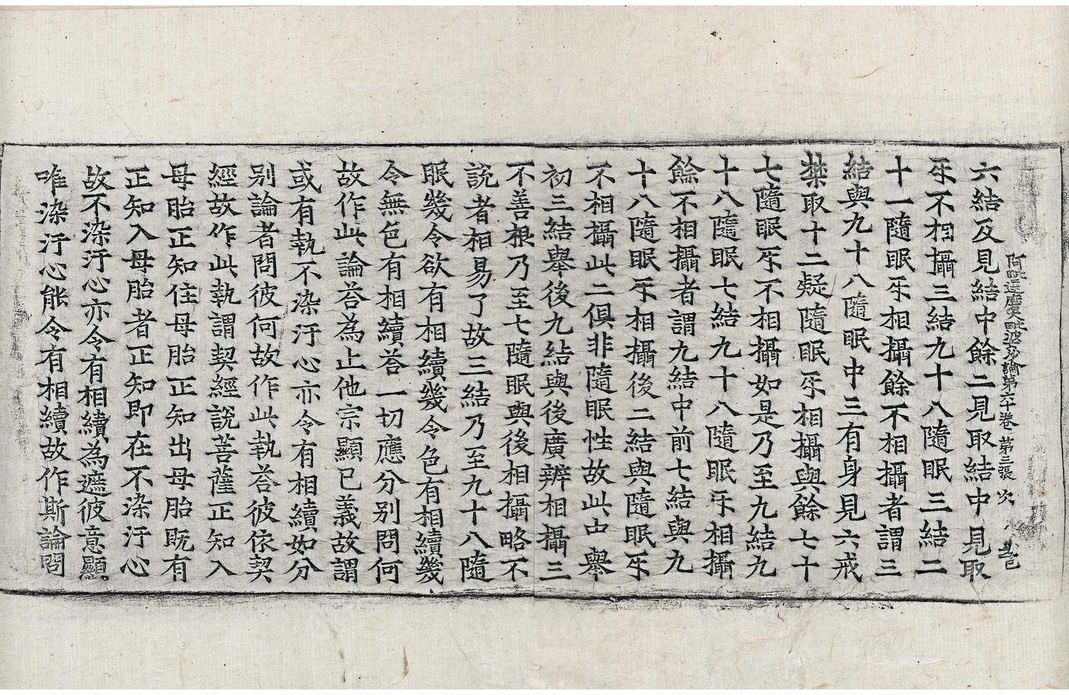 阿毗達磨大毗婆沙論第六十卷 第三張 次
六結及見結中餘二見取結中見取
㸦不相攝三結九十八隨眠三結二
十一隨眠㸦相攝餘不相攝者謂三
結與九十八隨眠中三有身見六戒
禁取十二疑隨眠㸦相攝與餘七十
七隨眠㸦不相攝如是乃至九結九
十八隨眠七結九十八隨眠㸦相攝
餘不相攝者謂九結中前七結與九
十八隨眠㸦相攝後二結與隨眠㸦
不相攝此二俱非隨眠性故此中舉
初三結舉後九結與後廣辨相攝三
不善根乃至七隨眠與後相攝略不
說者相易了故三結乃至九十八隨
眠幾令欲有相續幾令色有相續幾
令無色有相續答一切應分別問何
故作此論答為止他宗顯已義故謂
或有執不染汙心亦令有相續如分
別論者問彼何故作此執答彼依契
經故作此執謂契經說菩薩正知入
母胎正知住母胎正知出母胎既有
正知入母胎者正知即在不染汙心
故不染汙心亦令有相續為遮彼意顯
唯染汙心能令有相續故作斯論問